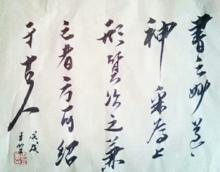 書之妙道
神彩为上
形質次之兼
之者方可紹
于古人
戊戌